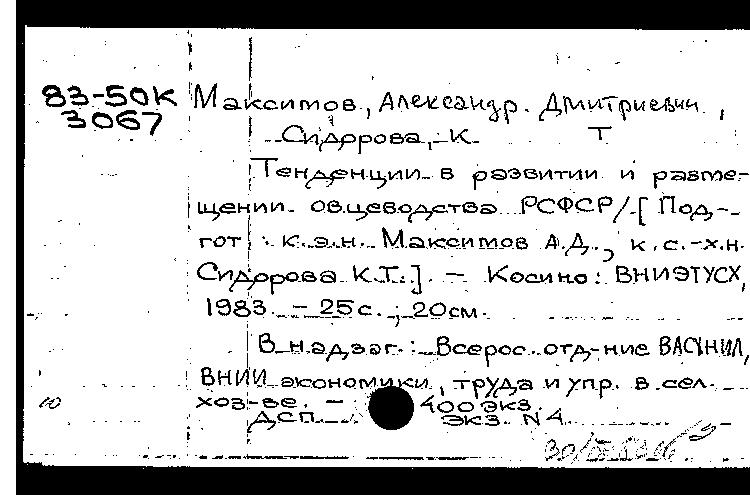 83-50К Максимов, Александр Дмитриевич,
3067 Сидорова, К Т
Тенденции в развитии и разме-
щении овцеводства РСФСР/[Под-
гот.: к.э.н. Максимов А.Д., к.с.-х.н.
Сидорова К.Т.]. - Косино: ВНИЭТУСХ,
1983. - 25с.; 20см.
В надзаг.: Всерос. отд-ние ВАСХНИЛ,
ВНИИ экономики, труда и упр. в сел.
10 хоз-ве. - 400 экз.
ДСП. Экз. N 4